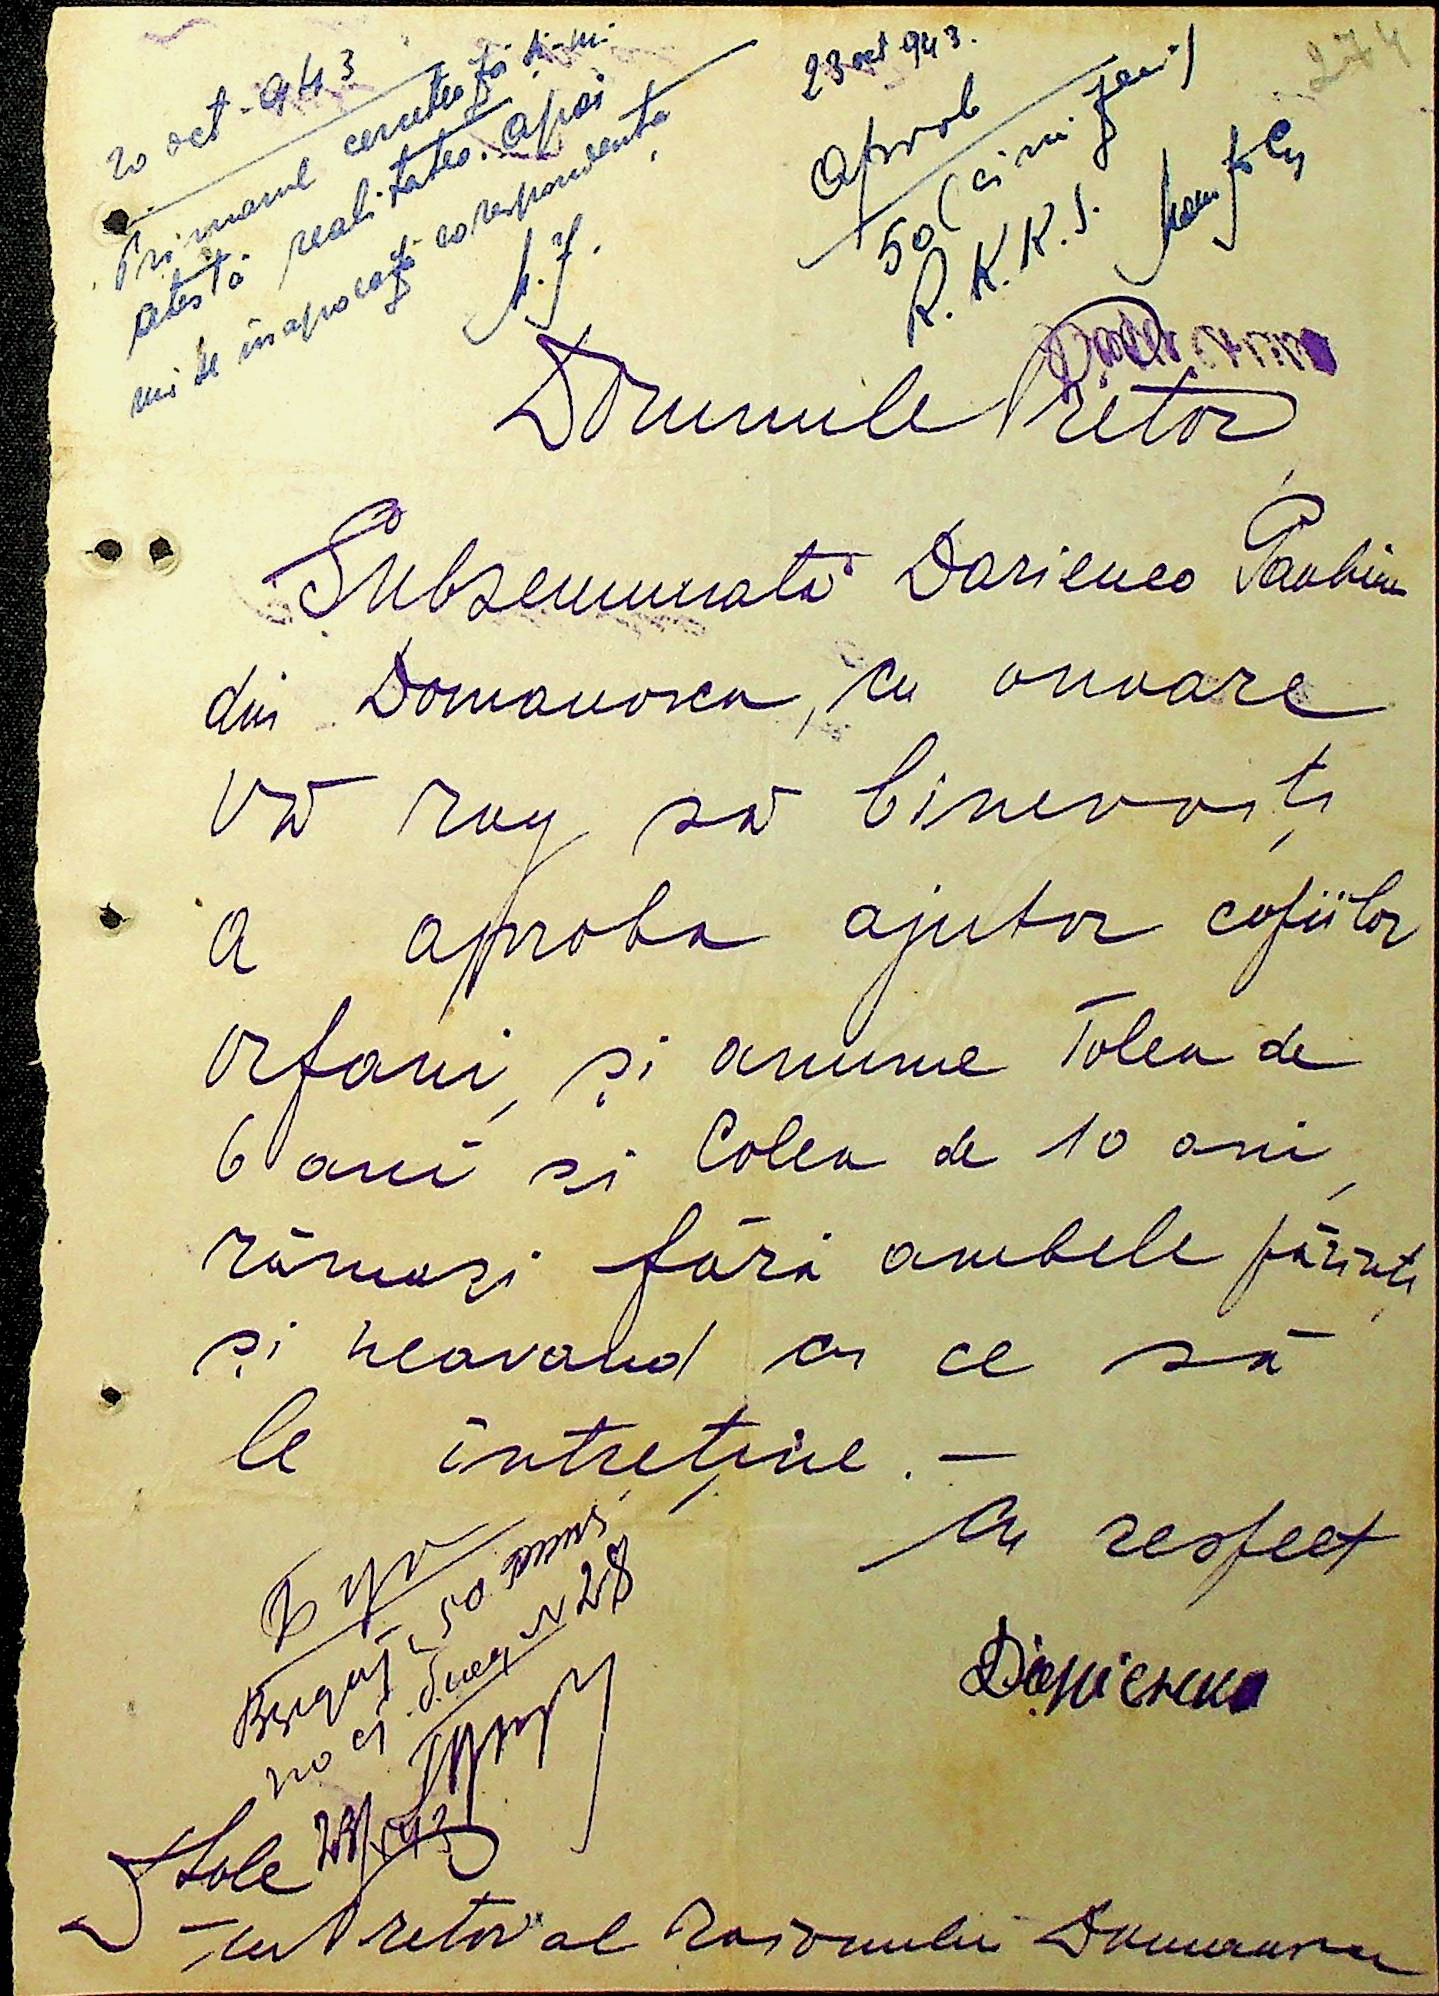 274
20 oct. 943
Primarul cercetează și-mi
atestă realitatea. Apoi
mi se înapoiază corespondența
23 oct 943.
Aprob
50 (cinizeci)
R.K.K.S.
Domnule Pretor,
Subsemnata Darienco
din Domanovca, cu onoare
Vă rog să binevoiți
a aproba ajutor copiilor
orfani, și anume Tolea de
6 ani și Colea de 10 ani,
rămași fără ambele părinți
și neavand cu ce să
le întreține. —
Cu respect
50
28
D-Sale
D-lui Pretor al Raionului Domanovca